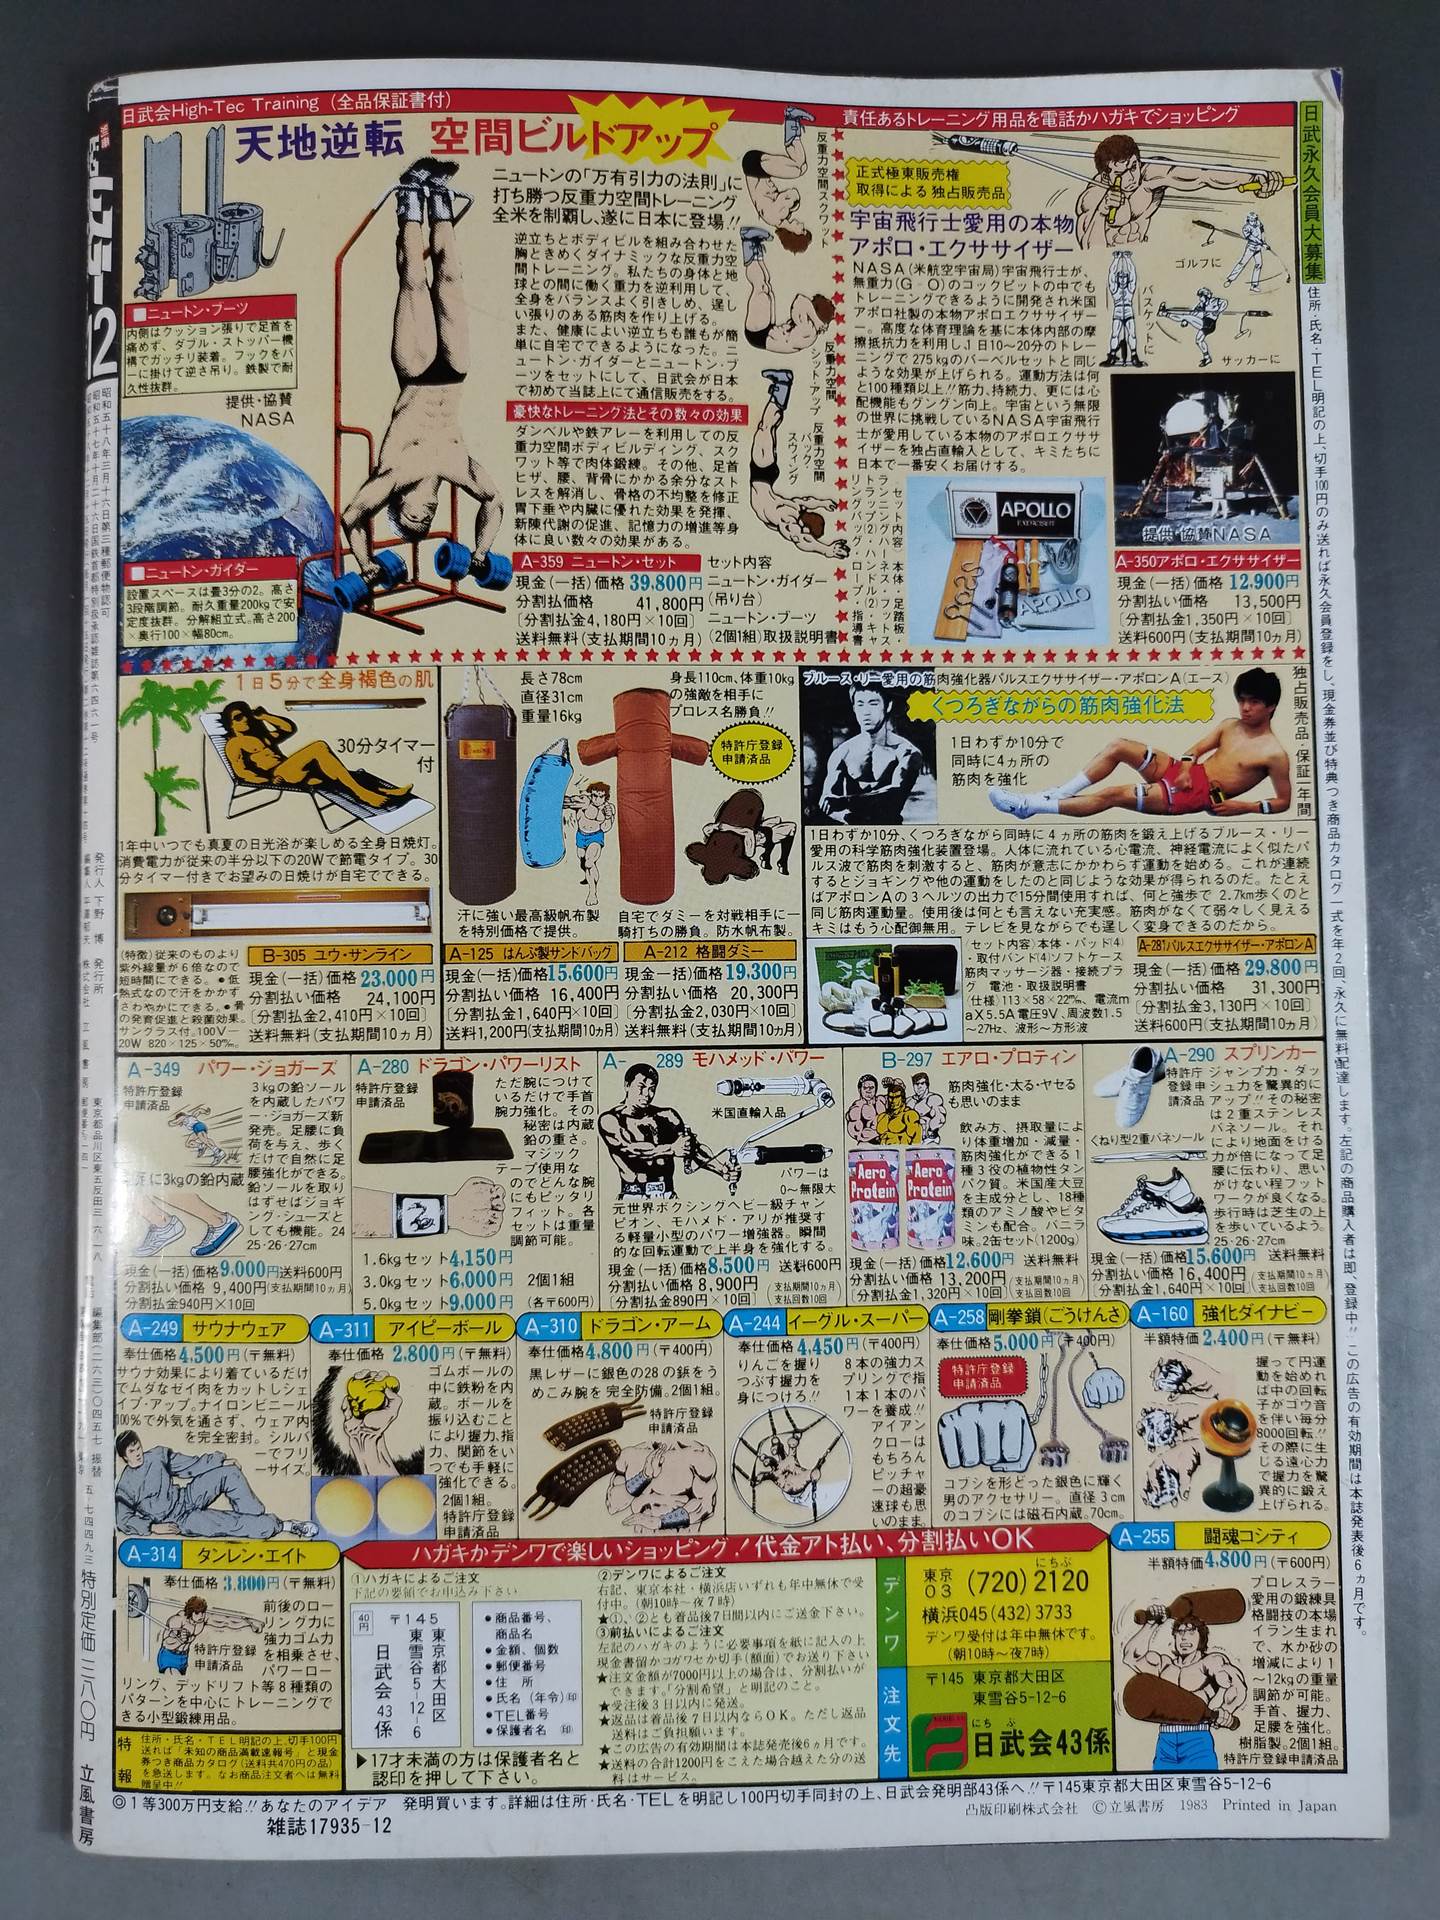 日武会High-Tec Training（全品保証書付）
責任あるトレーニング用品を電話かハガキでショッピング
天地逆転 空間ビルドアップ
ニュートンの「万有引力の法則」に
打ち勝つ反重力空間トレーニング
全米を制覇し、遂に日本に登場!!
逆立ちとボディビルを組み合わせた
胸ときめくダイナミックな反重力空
間トレーニング。私たちの身体と地
球との間に働く重力を逆利用して、
全身をバランスよく引きしめ、逞し
い張りのある筋肉を作り上げる。
また、健康によい逆立ちも誰もが簡
単に自宅でできるようになった。ニ
ュートン・ガイダーとニュートン・ブ
ーツをセットにして、日武会が日本
で初めて当誌上にて通信販売をする。
豪快なトレーニング法とその数々の効果
ダンベルや鉄アレーを利用しての反
重力空間ボディビルディング、スク
ワット等で肉体鍛練。その他、足首
ヒザ、腰、背骨にかかる余分なスト
レスを解消し、骨格の不均整を修正
胃下垂や内臓に優れた効果を発揮、
新陳代謝の促進、記憶力の増進等身
体に良い数々の効果がある。
■ニュートン・ブーツ
内側はクッション張りで足首を
痛めず、ダブル・ストッパー機
構でガッチリ装着。フックをバ
ーに掛けて逆さ吊り。鉄製で耐
久性抜群。
提供・協賛
NASA
■ニュートン・ガイダー
設置スペースは畳3分の2。高さ
3段階調節。耐久重量200kgで安
定度抜群。分解組立式。高さ200
×奥行100×幅80cm。
反重力空間スクワット
反重力空間シット・アップ
反重力空間バック・スウィング
A-359 ニュートン・セット
現金(一括)価格 39,800円
分割払価格 41,800円
[分割払金4,180円×10回]
送料無料(支払期間10ヵ月)
セット内容
ニュートン・ガイダー
(吊り台)
ニュートン・ブーツ
(2個1組)取扱説明書
正式極東販売権
取得による独占販売品
宇宙飛行士愛用の本物
アポロ・エクササイザー
NASA(米航空宇宙局)宇宙飛行士が、
無重力(G-O)のコックピットの中でも
トレーニングできるように開発され米国
アポロ社製の本物アポロエクササイザ
ー。高度な体育理論を基に本体内部の摩
擦抵抗力を利用し、1日10～20分のトレー
ニングで275kgのバーベルセットと同じ
ような効果が上げられる。運動方法は何
と100種類以上!!筋力、持続力、更には心
配機能もグングン向上。宇宙という無限
の世界に挑戦しているNASA宇宙飛行
士が愛用している本物のアポロエクササ
イザーを独占直輸入として、キミたちに
日本で一番安くお届けする。
ゴルフに
バスケットに
サッカーに
提供・協賛NASA
APOLLO
EXERCISER
A-350アポロ・エクササイザー
現金(一括)価格 12,900円
分割払価格 13,500円
[分割払金1,350円×10回]
送料600円(支払期間10ヵ月)
日武永久会員大募集
住所・氏名・TEL明記の上、切手100円のみ送れば永久会員登録をし、現金券並び特典つき商品カタログ一式を年2回、永久に無料配達します。左記の商品購入者は即、登録中!! この広告の有効期間は本誌発表後6ヵ月です。
1日5分で全身褐色の肌
30分タイマー
付
1年中いつでも真夏の日光浴が楽しめる全身日焼灯。
消費電力が従来の半分以下の20Wで節電タイプ。30
分タイマー付きでお望みの日焼けが自宅でできる。
(特徴)従来のものより
紫外線量が6倍なので
短時間にできる。●低
熱式なので汗をかかず
さわやかにできる。●骨
の発育促進と殺菌効果。
サングラス付。100V―
20W 820×125×50㎜。
B-305 ユウ・サンライン
現金(一括)価格23,000円
分割払い価格 24,100円
[分割払金2,410円×10回]
送料無料(支払期間10ヵ月)
長さ78cm
直径31cm
重量16kg
汗に強い最高級帆布製
を特別価格で提供。
A-125 はんぷ製サンドバッグ
現金(一括)価格15,600円
分割払い価格 16,400円
[分割払金1,640円×10回]
送料1,200円(支払期間10ヵ月)
身長110cm、体重10kg
の強敵を相手に
プロレス名勝負!!
特許庁登録
申請済品
自宅でダミーを対戦相手に一
騎打ちの勝負。防水帆布製。
A-212 格闘ダミー
現金(一括)価格19,300円
分割払い価格 20,300円
[分割払金2,030円×10回]
送料無料(支払期間10ヵ月)
ブルース・リー愛用の筋肉強化器パルスエクササイザー・アポロンA(エース)
くつろぎながらの筋肉強化法
1日わずか10分で
同時に4ヵ所の
筋肉を強化
独占販売品・保証一年間
1日わずか10分、くつろぎながら同時に4ヵ所の筋肉を鍛え上げるブルース・リー
愛用の科学筋肉強化装置登場。人体に流れている心電流、神経電流によく似たパ
ルス波で筋肉を刺激すると、筋肉が意志にかかわらず運動を始める。これが連続
するとジョギングや他の運動をしたのと同じような効果が得られるのだ。たとえ
ばアポロンAの3ヘルツの出力で15分間使用すれば、何と強歩で2.7km歩くのと
同じ筋肉運動量。使用後は何とも言えない充実感。筋肉がなくて弱々しく見える
キミはもう心配御無用。テレビを見ながらでも逞しく変身できるのだから。
(セット内容)本体・パッド(4)
・取付バンド(4)ソフトケース
筋肉マッサージ器・接続プラ
グ 電池・取扱説明書
(仕様)113×58×22㎜、電流m
aX5.5A電圧9V、周波数1.5
～27Hz、波形～方形波
A-281パルスエクササイザー・アポロンA
現金(一括)価格 29,800円
分割払い価格 31,300円
[分割払金3,130円×10回]
送料600円(支払期間10ヵ月)
A-349 パワー・ジョガーズ
特許庁登録
申請済品
3kgの鉛ソール
を内蔵したパワ
ー・ジョガーズ新
発売。足腰に負
荷を与え、歩く
だけで自然に足
腰強化ができる。
鉛ソールを取り
はずせばジョギ
ング・シューズと
しても機能。24
25・26・27cm
に3kgの鉛内蔵
現金(一括)価格9,000円送料600円
分割払い価格 9,400円(支払期間10ヵ月)
分割払金940円×10回
A-280 ドラゴン・パワーリスト
特許庁登録
申請済品
ただ腕につけて
いるだけで手首
腕力強化。その
秘密は内蔵
鉛の重さ。
マジック
テープ使用な
のでどんな腕
にもピッタリ
フィット。各
セットは重量
調節可能。
1.6kgセット4,150円
3.0kgセット6,000円 2個1組
5.0kgセット9,000円 (各〒600円)
A-289 モハメッド・パワー
米国直輸入品
パワーは
0～無限大
元世界ボクシングヘビー級チャン
ピオン、モハメド・アリが推奨す
る軽量小型のパワー増強器。瞬間
的な回転運動で上半身を強化する。
現金(一括)価格8,500円 送料600円
分割払い価格8,900円 (支払期間10ヵ月)
[分割払金890円×10回] 支払回数10回
B-297 エアロ・プロティン
筋肉強化・太る・ヤセる
も思いのまま
Aero Protein
Aero Protein
飲み方、摂取量によ
り体重増加・減量・
筋肉強化ができる1
種3役の植物性タン
パク質。米国産大豆
を主成分とし、18種
類のアミノ酸やビタ
ミンも配合。バニラ
味。2缶セット(1200g)
現金(一括)価格12,600円 送料無料
分割払い価格 13,200円 (支払期間10ヵ月)
[分割払金1,320円×10回] 支払回数10回
A-290 スプリンカー
特許庁登録申請済品
ジャンプ力・ダッ
シュ力を驚異的に
アップ!!その秘密
は2重ステンレス
バネソール。それ
により地面をける
力が倍になって足
腰に伝わり、思い
がけない程フット
ワークが良くなる。
歩行時は芝生の上
を歩いているよう。
25・26・27cm
くねり型2重バネソール
現金(一括)価格15,600円 送料無料
分割払い価格 16,400円 (支払期間10ヵ月)
[分割払金1,640円×10回] 支払回数10回
A-249 サウナウェア
奉仕価格4,500円(〒無料)
サウナ効果により着ているだけ
でムダなゼイ肉をカットしシェ
イプ・アップ。ナイロンビニール
100%で外気を通さず、ウェア内
を完全密封。シルバ
ーでフリ
ーサイズ。
A-311 アイピーボール
奉仕価格 2,800円(〒無料)
ゴムボールの
中に鉄粉を内
蔵。ボールを
振り込むこと
により握力、指
力、関節をい
つでも手軽に
強化できる。
2個1組。
特許庁登録
申請済品
A-310 ドラゴン・アーム
奉仕価格4,800円(〒400円)
黒レザーに銀色の28の鋲をう
めこみ腕を完全防備。2個1組。
特許庁登録
申請済品
A-244 イーグル・スーパー
奉仕価格 4,450円(〒400円)
りんごを握り
つぶす握力を
身につけろ!!
8本の強力ス
プリングで指
1本1本のパ
ワーを養成!!
アイアン
クローは
もちろん
ピッチャ
ーの超豪
速球も思
いのまま。
A-258 剛拳鎖(ごうけんさ)
奉仕価格5,000円(〒400円)
特許庁登録
申請済品
コブシを形どった銀色に輝く
男のアクセサリー。直径3cm
のコブシには磁石内蔵。70cm。
A-160 強化ダイナビー
半額特価2,400円(〒無料)
握って円運
動を始めれ
ば中の回転
子がゴウ音
を伴い毎分
8000回転!!
その際に生
じる遠心力
で握力を驚
異的に鍛え
上げられる。
A-314 タンレン・エイト
奉仕価格 3,800円(〒無料)
前後のロー
リング力に
強力ゴム力
を相乗させ、
パワーロー
リング、デッドリフト等8種類の
パターンを中心にトレーニングで
きる小型鍛練用品。
特許庁登録
申請済品
特報
住所・氏名・TEL明記の上、切手100円
送れば「未知の商品満載速報号」と現金
券つき商品カタログ(送料共470円の品)
を急送します。なお商品注文者へは無料
贈呈中!!
ハガキかデンワで楽しいショッピング！代金アト払い、分割払いOK
①ハガキによるご注文
下記の要領でお申込み下さい
40円
〒145
東京都大田区
東雪谷5-12-6
日武会43係
●商品番号、
商品名
●金額、個数
●郵便番号
●住 所
●氏名(年令)㊞
●TEL番号
●保護者名 ㊞
▶17才未満の方は保護者名と
認印を押して下さい。
②デンワによるご注文
右記、東京本社・横浜店いずれも年中無休で受
付中。(朝10時～夜7時)
★①、②とも着品後7日間以内にご送金下さい。
③前払いによるご注文
左記のハガキのように必要事項を紙に記入の上
現金書留かコガワセか切手(額面)でお送り下さい
★注文金額が7000円以上の場合は、分割払いが
できます。「分割希望」と明記のこと。
★受注後3日以内に発送。
★返品は着品後7日以内ならOK。ただし返品
送料はご負担願います。
★この広告の有効期間は本誌発売後6ヵ月です。
★送料の合計1200円をこえた場合越えた分の送
料はサービス。
デンワ
東京03(720)2120
にちぶ
横浜045(432)3733
デンワ受付は年中無休です。
(朝10時～夜7時)
注文先
〒145 東京都大田区
東雪谷5-12-6
にちぶ
日武会43係
A-255 闘魂コシティ
半額特価4,800円(〒600円)
プロレスラー
愛用の鍛練具
格闘技の本場
イラン生まれ
で、水か砂の
増減により1
～12kgの重量
調節が可能。
手首、握力、
足腰を強化。
樹脂製。2個1組。
特許庁登録申請済品
◎1等300万円支給!!あなたのアイデア 発明買います。詳細は住所・氏名・TELを明記し100円切手同封の上、日武会発明部43係へ!!〒145東京都大田区東雪谷5-12-6
雑誌17935-12
凸版印刷株式会社 ©立風書房 1983 Printed in Japan
12
特別定価三八〇円 立風書房